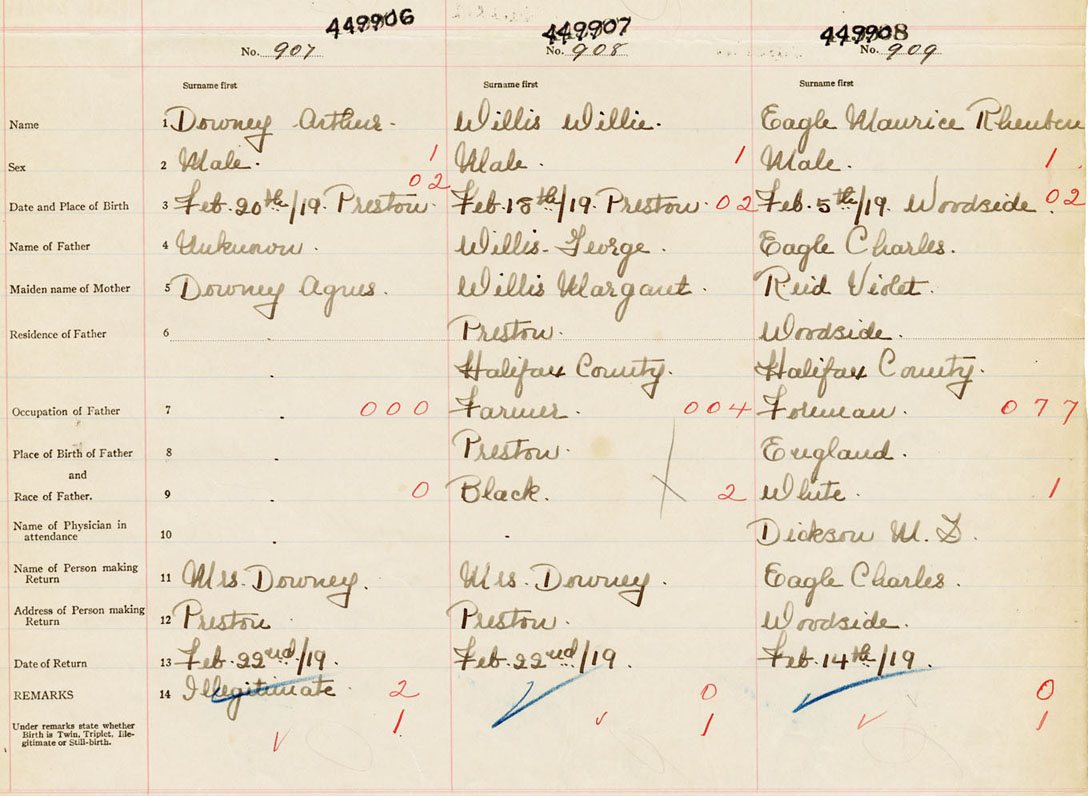 449906 449907 449908
No. 907 No. 908 No. 909
Surname first Surname first Surname first
Name 1 Downey Arthur. Willis Willie. Eagle Maurice Rheuben
Sex 2 Male. 1 Male. 1 Male. 1
02
Date and Place of Birth 3 Feb. 20th/19. Preston. Feb. 18th/19. Preston. 02 Feb. 5th/19. Woodside. 02
Name of Father 4 Unknown. Willis. George. Eagle Charles.
Maiden name of Mother 5 Downey Agnes. Willis Margaret. Reid Violet.
Residence of Father 6 Preston. Woodside.
Halifax County. Halifax County.
Occupation of Father 7 000 Farmer. 004 Foreman. 077
Place of Birth of Father 8 Preston. England.
and
Race of Father. 9 0 Black. 2 White. 1
Name of Physician in
attendance 10 Dickson M. D.
Name of Person making
Return 11 Mrs. Downey. Mrs. Downey. Eagle Charles.
Address of Person making
Return 12 Preston Preston. Woodside.
Date of Return 13 Feb. 22nd/19. Feb. 22nd/19. Feb. 14th/19.
REMARKS 14 Illegitimate. 2 0 0
Under remarks state whether 1 1 1
Birth is Twin, Triplet, Ille-
gitimate or Still-birth.